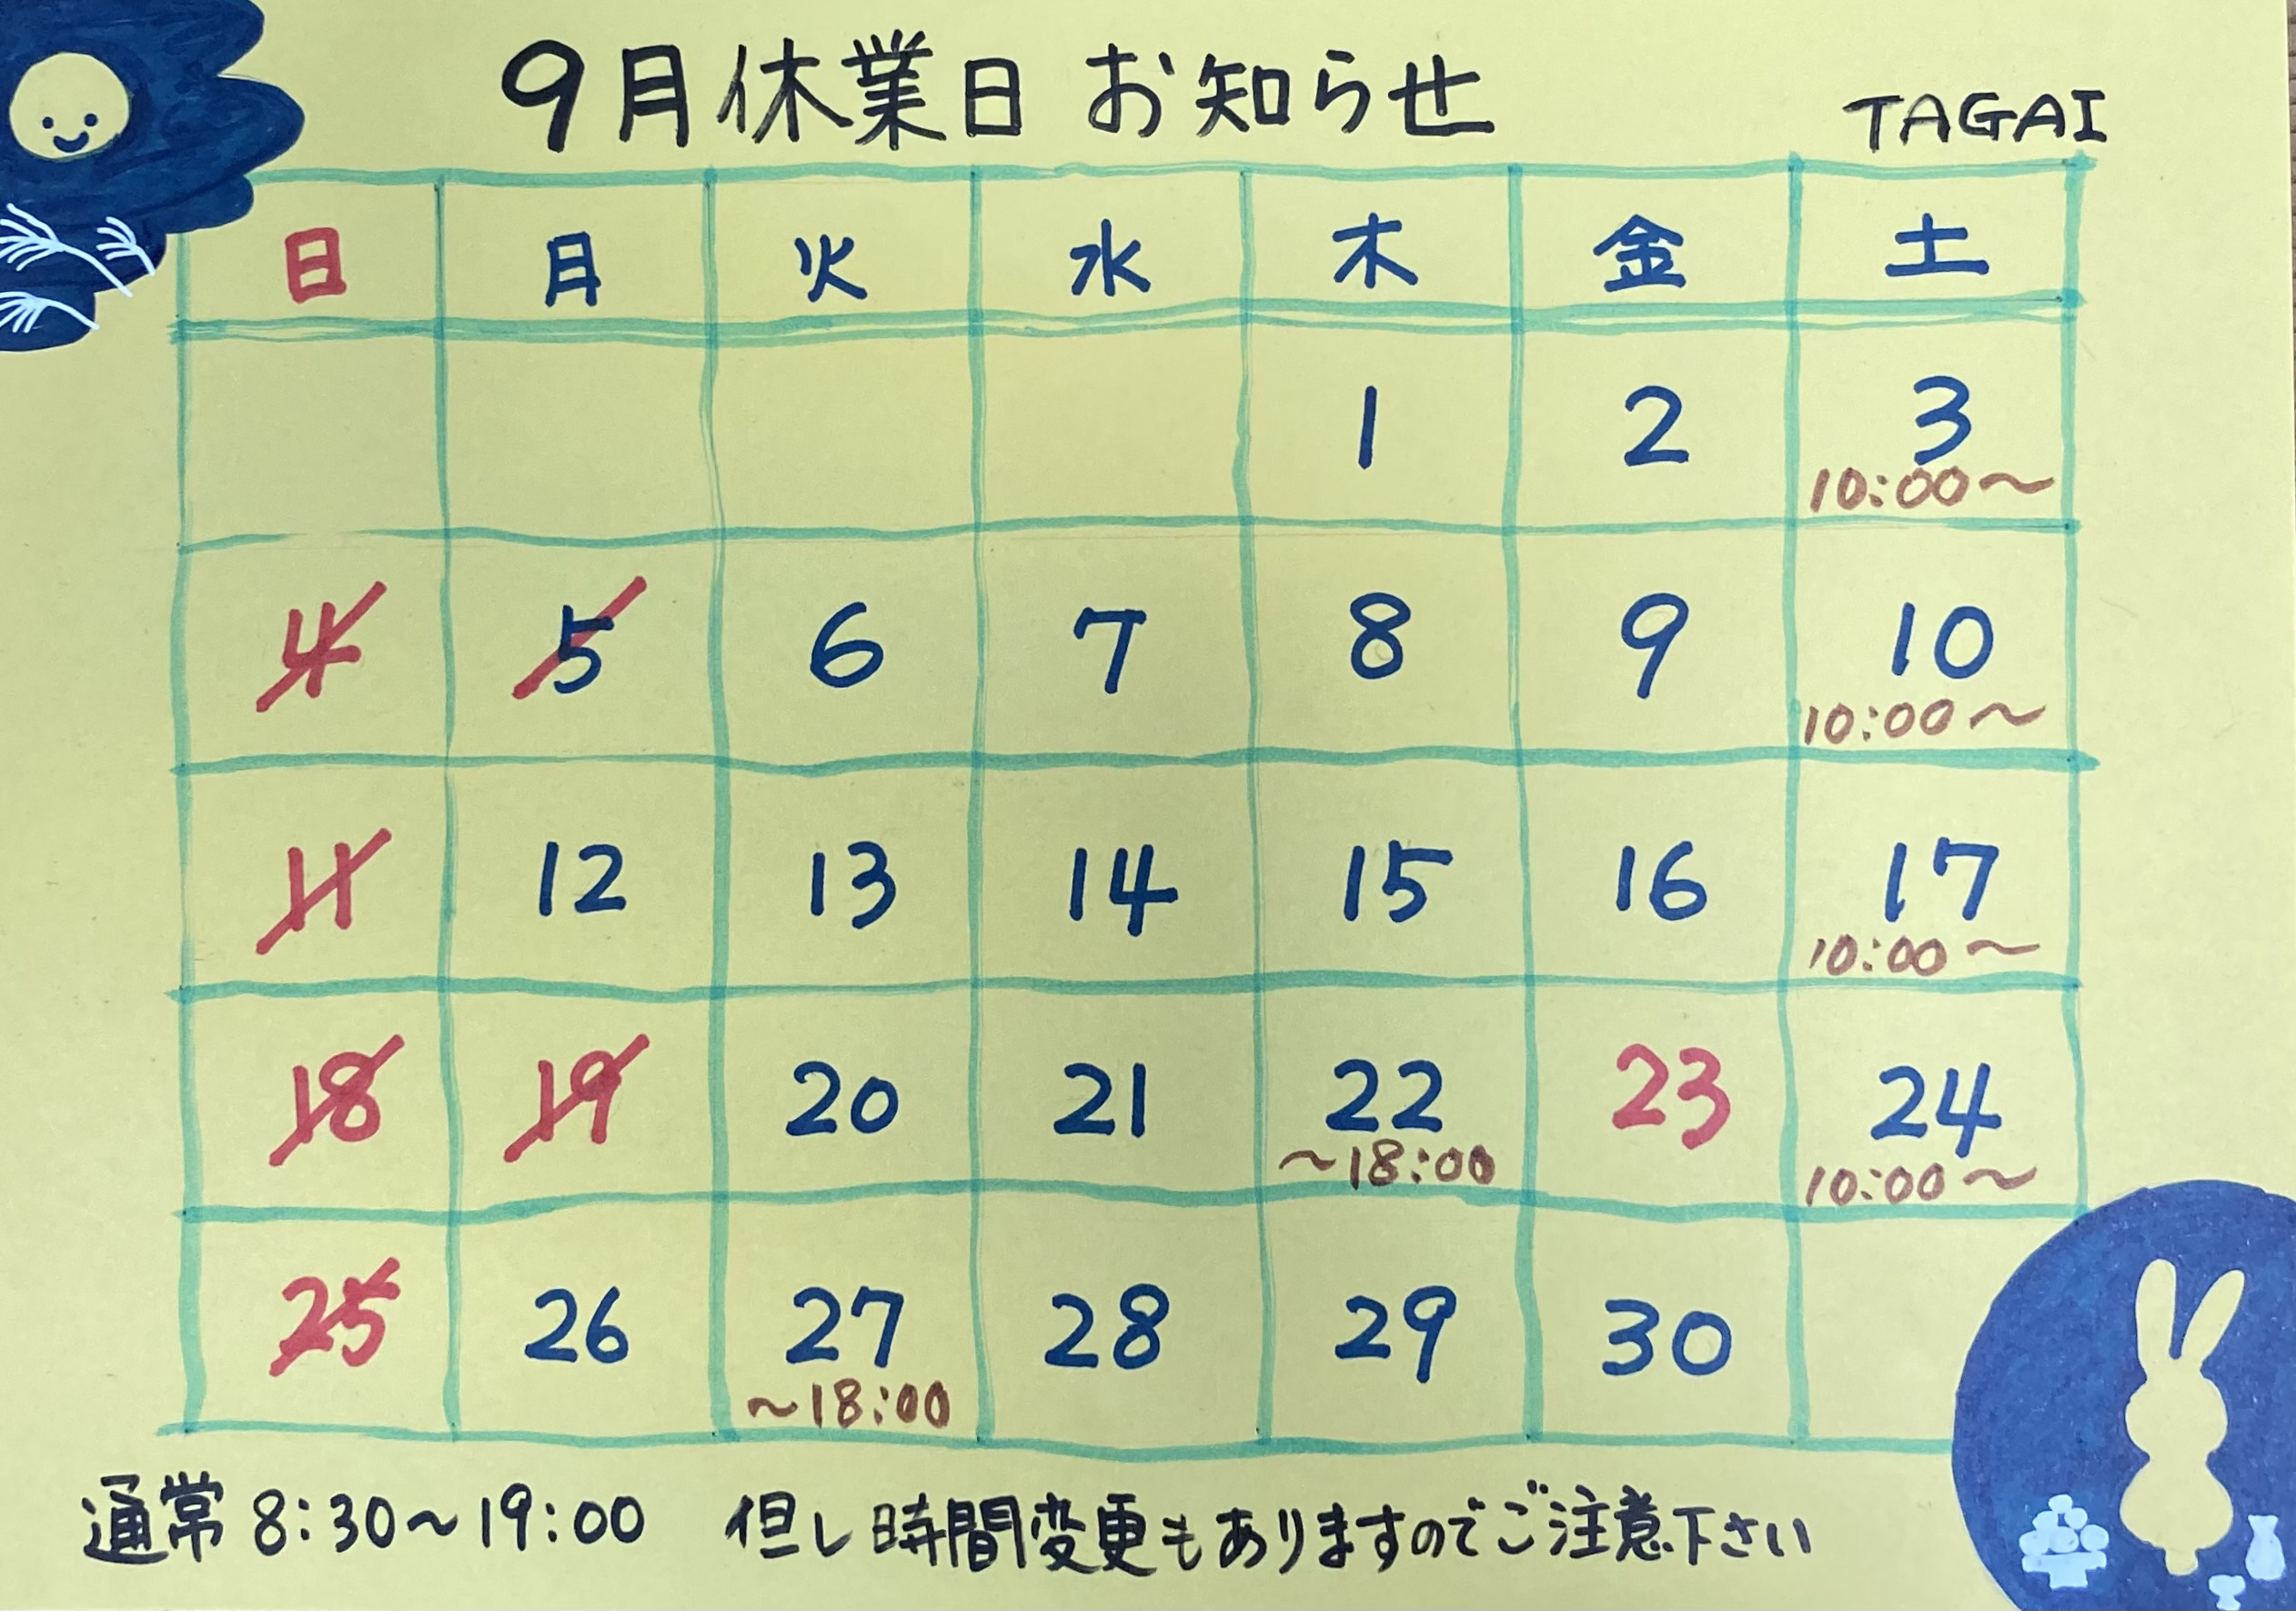 9月休業日 お知らせ TAGAI
日 月 火 水 木 金 土
1 2 3
10:00～
4 5 6 7 8 9 10
10:00～
11 12 13 14 15 16 17
10:00～
18 19 20 21 22 23 24
～18:00 10:00～
25 26 27 28 29 30
～18:00
通常 8:30～19:00 但し時間変更もありますのでご注意下さい